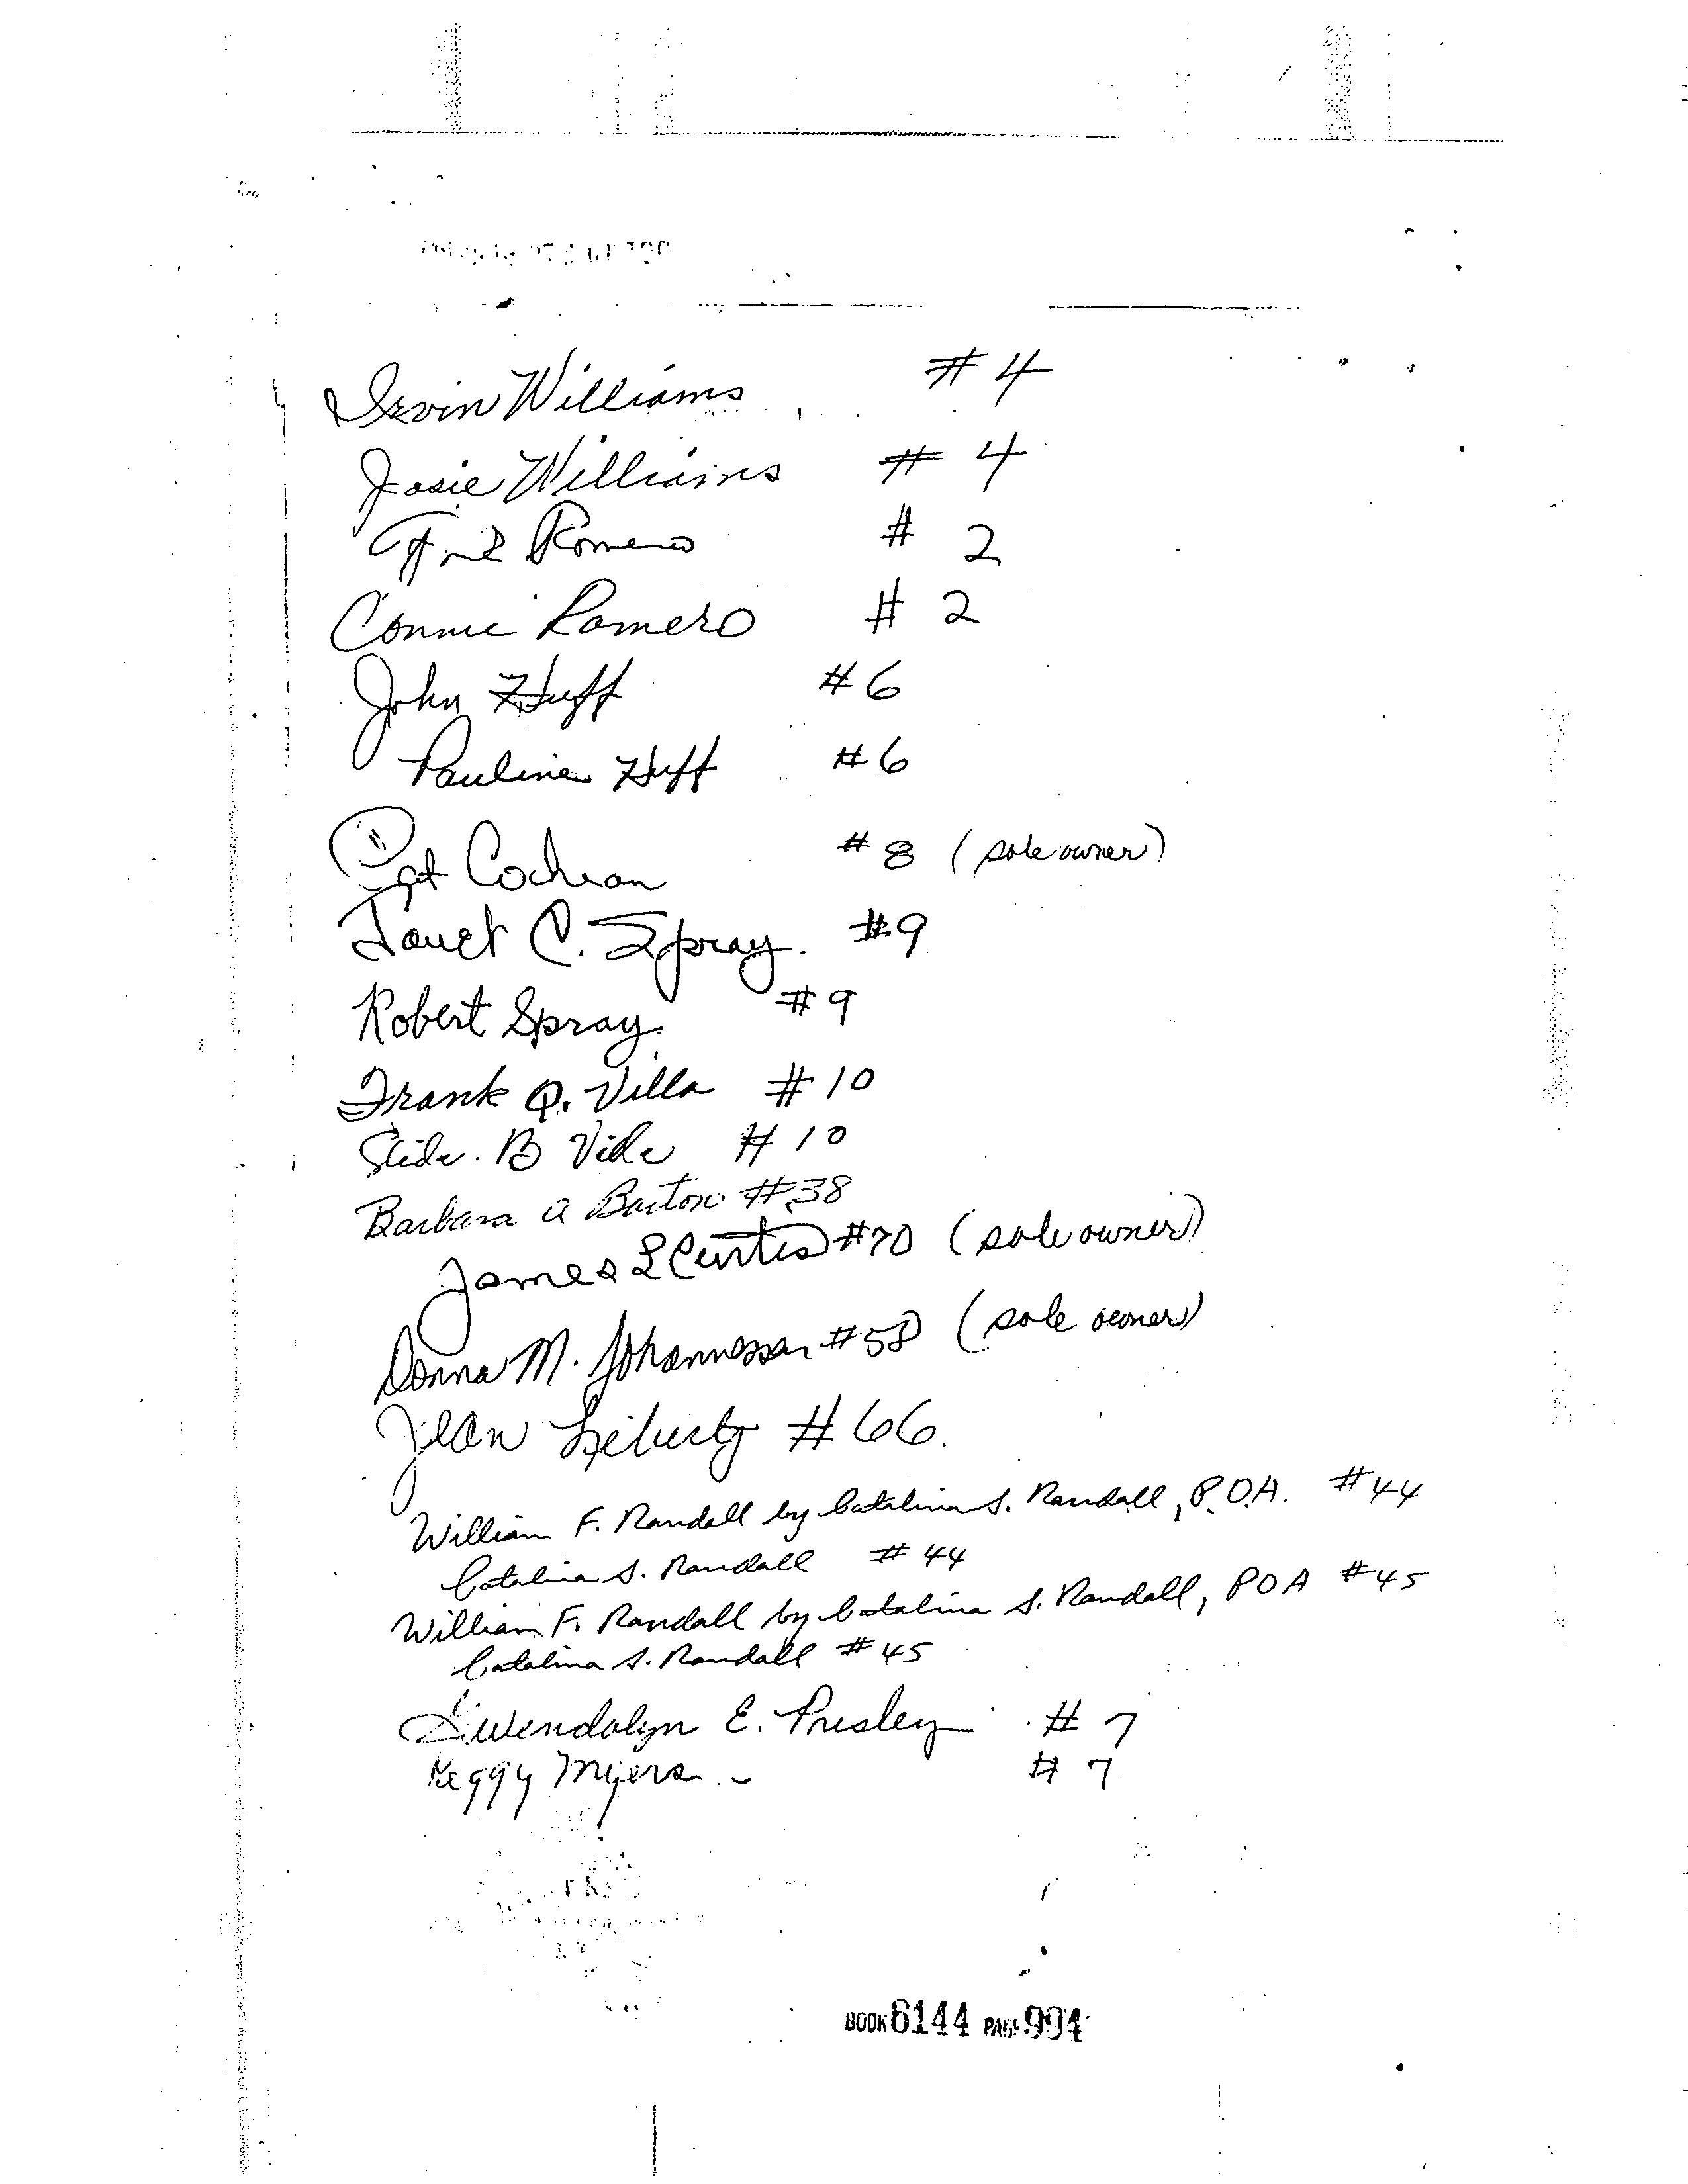 Irvin Williams # 4
Josie Williams # 4
Romero # 2
Connie Romero # 2
John Huff # 6
Pauline Huff # 6
Pat Cochran # 8 (sole owner)
Janet C. Spray. # 9
Robert Spray # 9
Frank Q. Villa # 10
B # 10
Barbara A Barton # 38
James L Curtis # 70 (sole owner)
Donna M. Johannessen # 58 (sole owner)
Jean # 66.
William F. Randall by Catalina S. Randall, P.O.A. # 44
Catalina S. Randall # 44
William F. Randall by Catalina S. Randall, POA # 45
Catalina S. Randall # 45
Gwendolyn E. Presley # 7
Peggy Myers # 7
BOOK 6144 PAGE 994